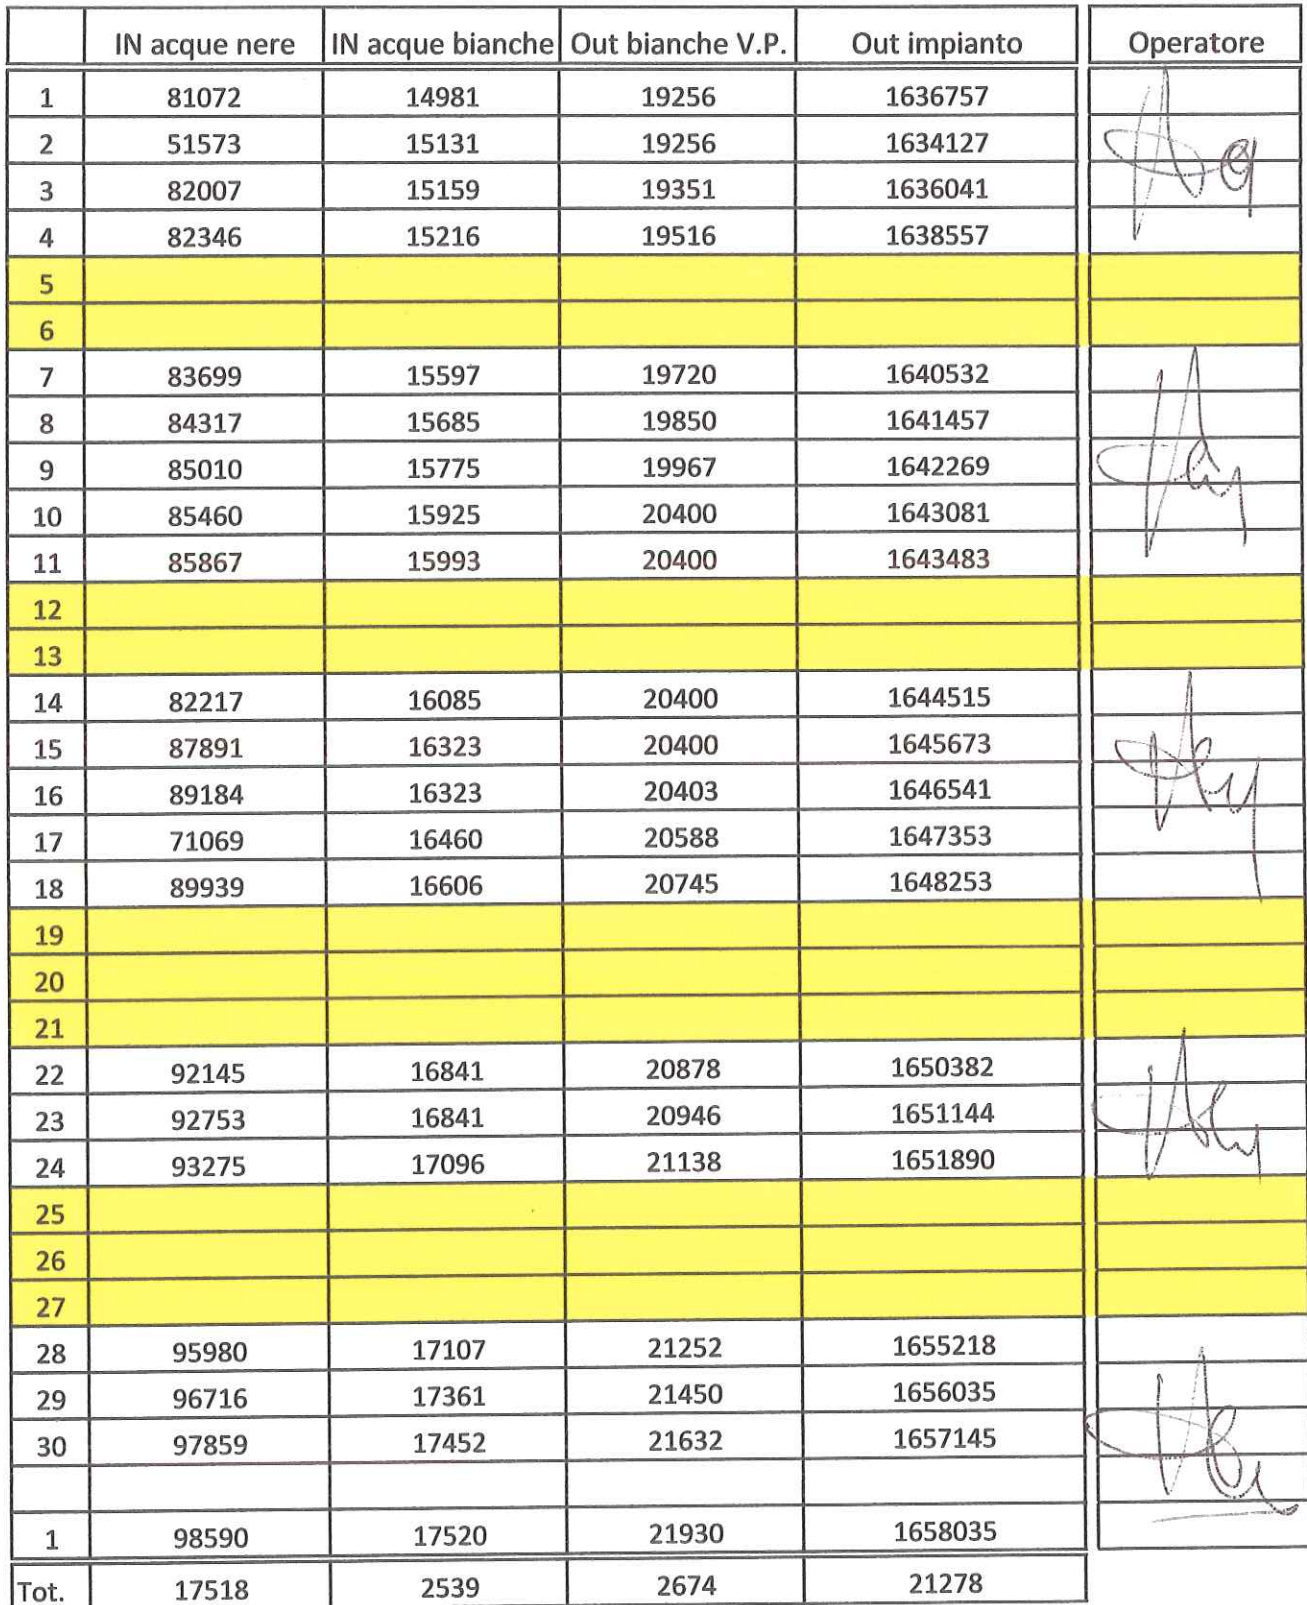 IN acque nere IN acque bianche Out bianche V.P. Out impianto Operatore
1 81072 14981 19256 1636757
2 51573 15131 19256 1634127
3 82007 15159 19351 1636041
4 82346 15216 19516 1638557
5
6
7 83699 15597 19720 1640532
8 84317 15685 19850 1641457
9 85010 15775 19967 1642269
10 85460 15925 20400 1643081
11 85867 15993 20400 1643483
12
13
14 82217 16085 20400 1644515
15 87891 16323 20400 1645673
16 89184 16323 20403 1646541
17 71069 16460 20588 1647353
18 89939 16606 20745 1648253
19
20
21
22 92145 16841 20878 1650382
23 92753 16841 20946 1651144
24 93275 17096 21138 1651890
25
26
27
28 95980 17107 21252 1655218
29 96716 17361 21450 1656035
30 97859 17452 21632 1657145
1 98590 17520 21930 1658035
Tot. 17518 2539 2674 21278